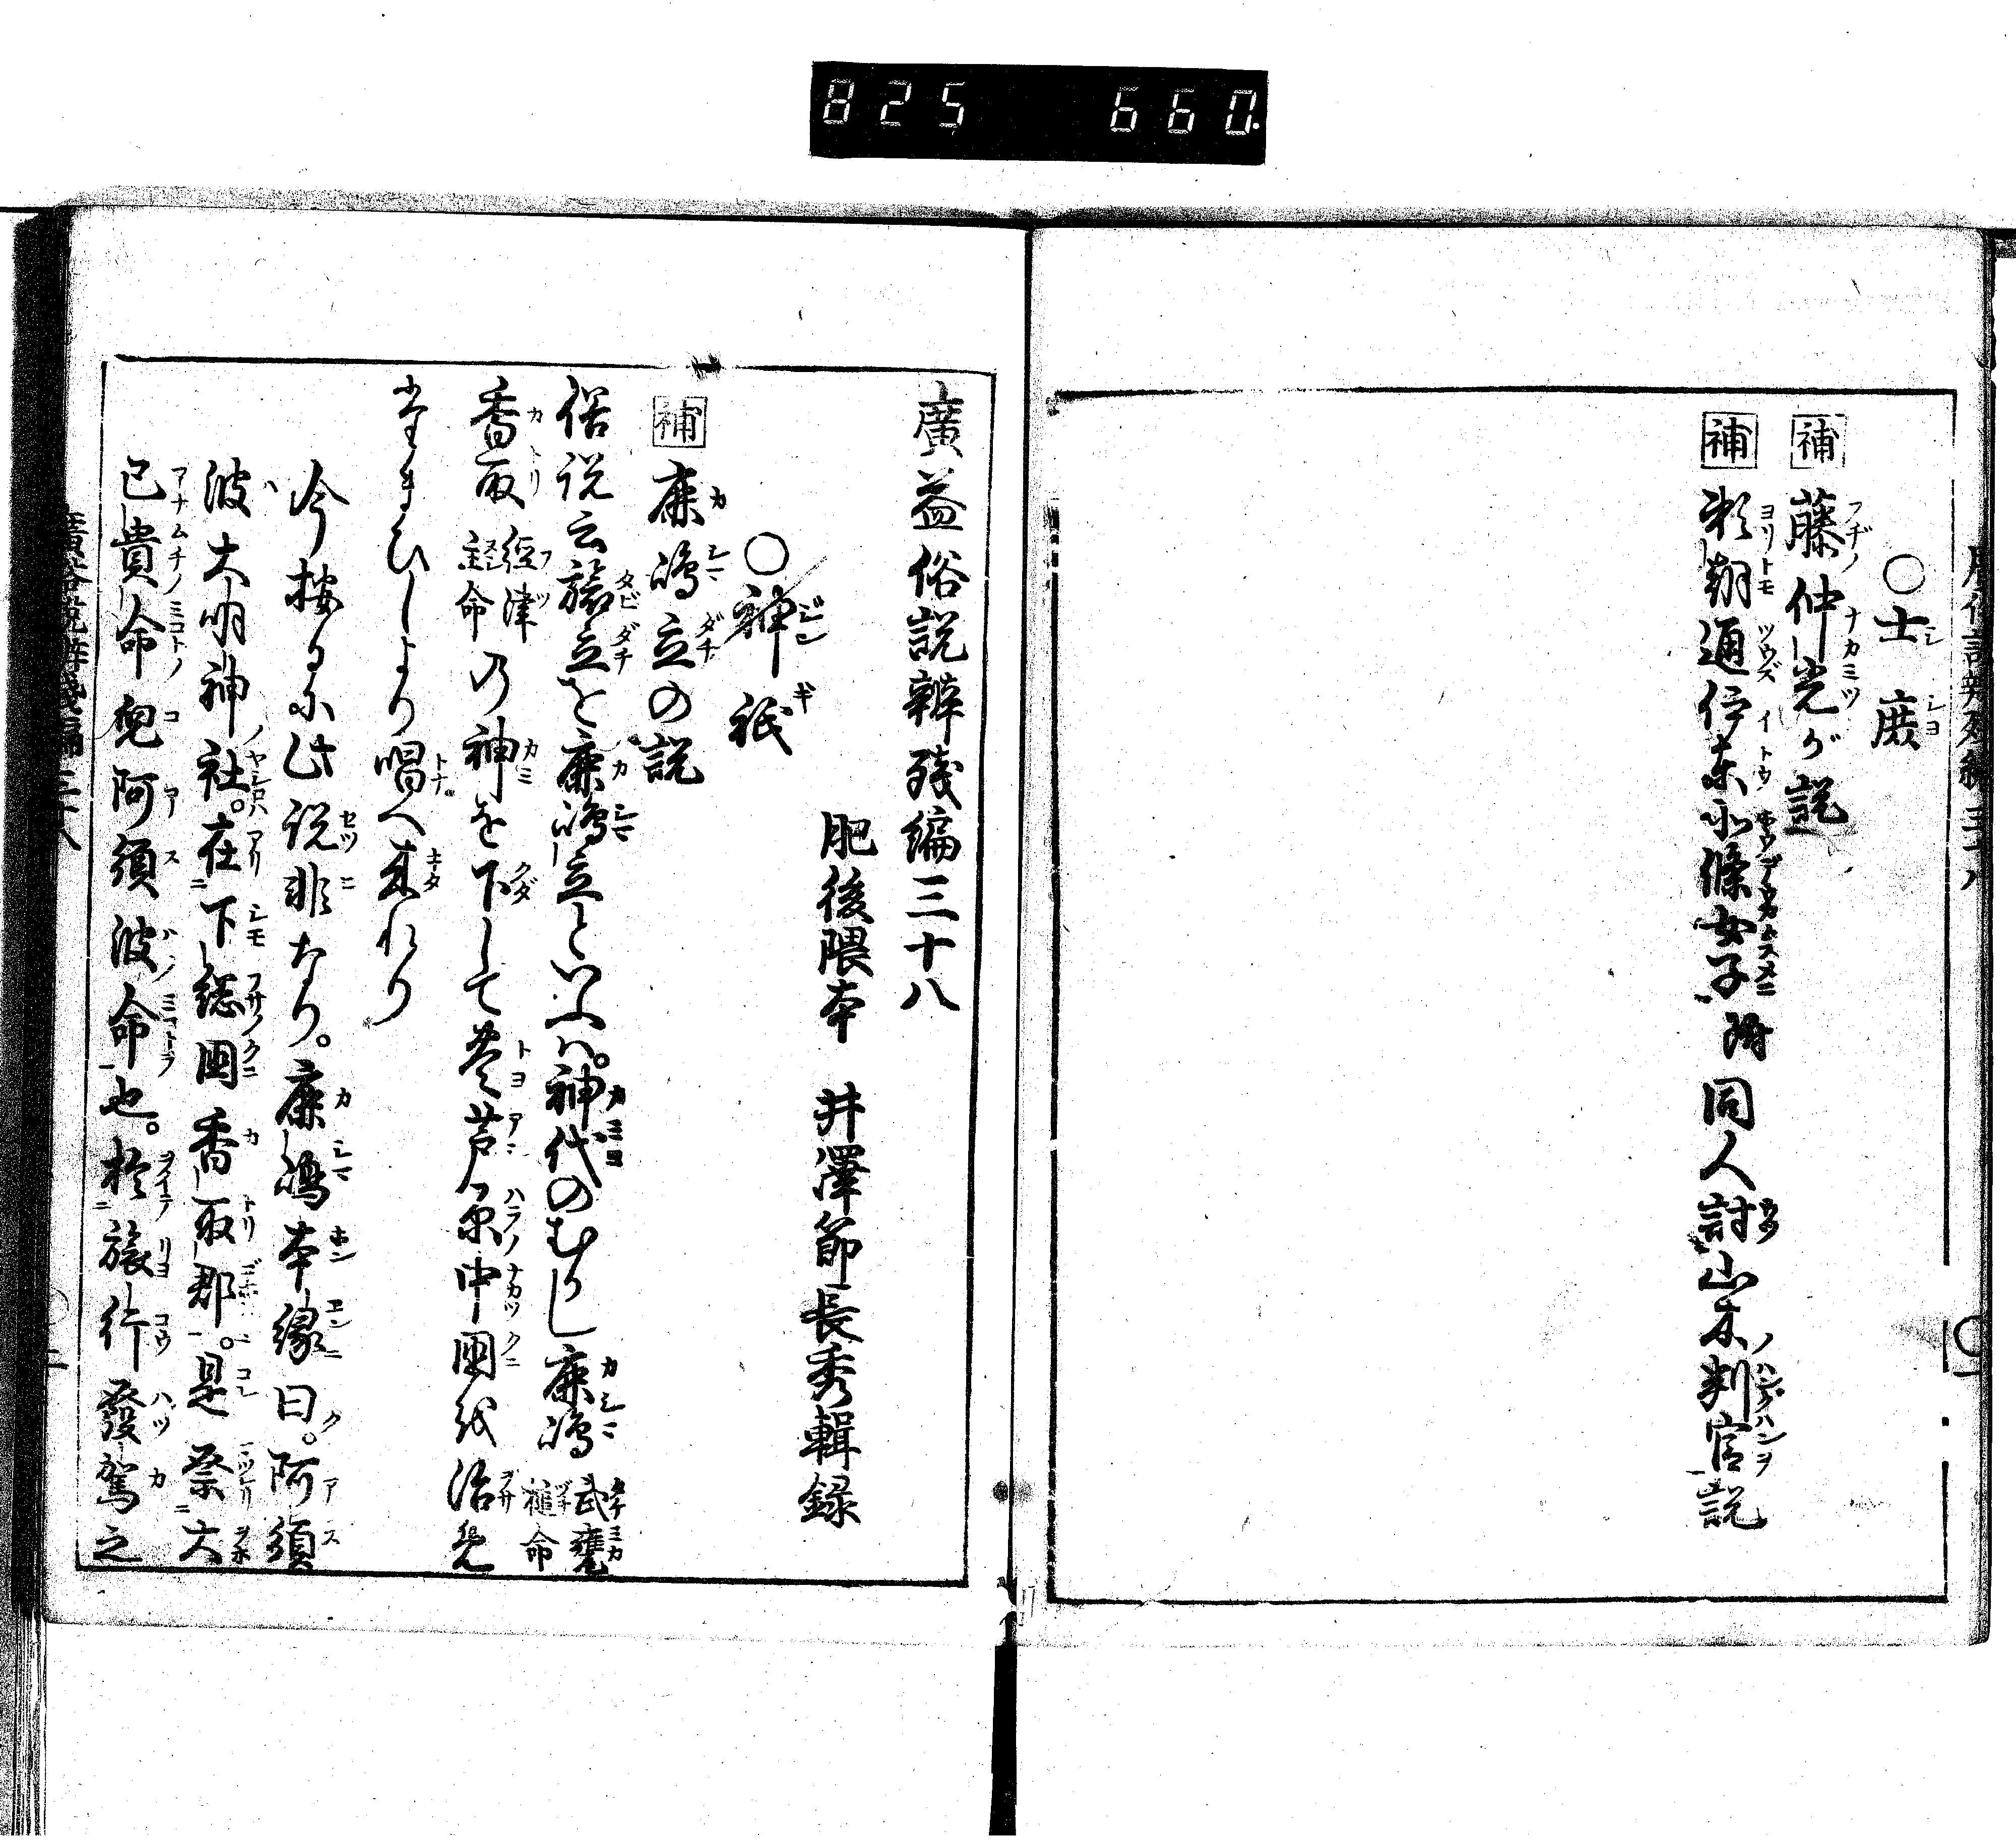 825 660.
○士庶
補 藤仲光が説
補 頼朝通伊東北條女子 附 同人討山木判官説
廣益俗説辨殘編三十八
肥後隈本 井澤節長秀輯録
○神祇
補 鹿嶋立の説
俗説云旅立を鹿嶋立といふハ。神代のむかし鹿嶋 武甕槌命
香取 經津主命 乃神を下して豊芦原中國を治め
たまひしより唱へ来れり
今按るに此説非なり。鹿嶋本縁曰。阿須
波大明神社。在下総国香取郡。是祭大
已貴命兒阿須波命也。於旅行發駕之